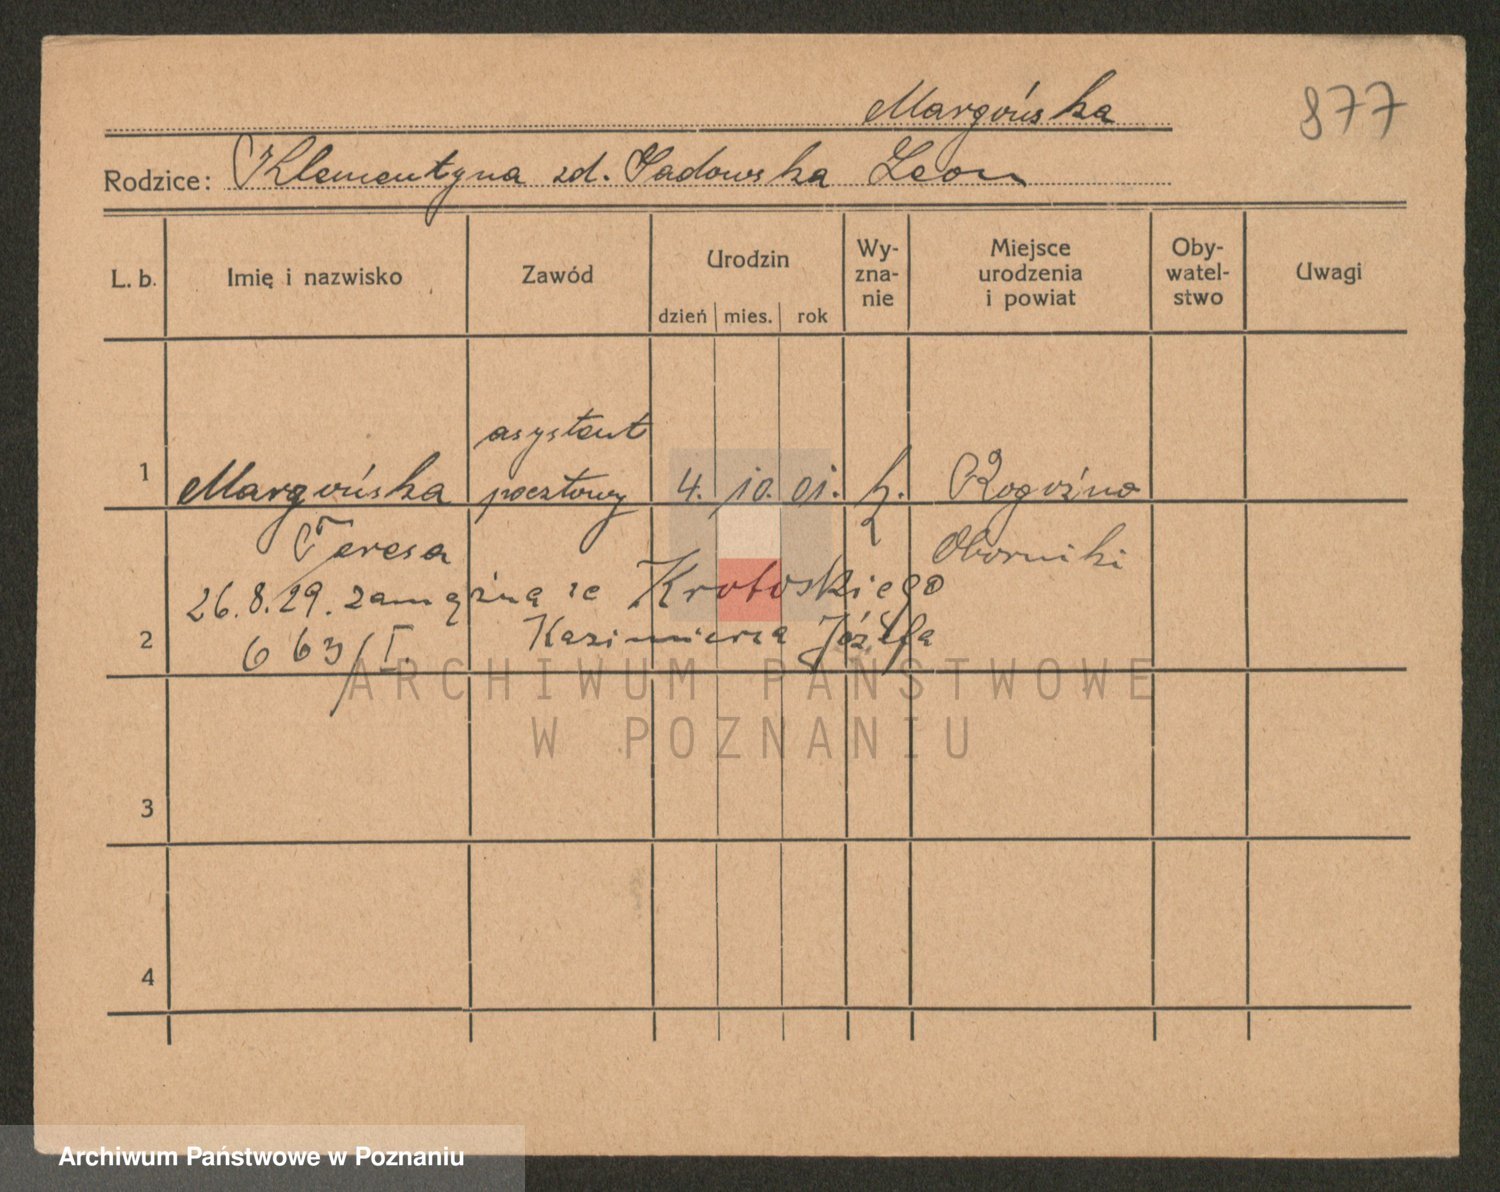 Margońska
877
Rodzice: Klementyna zd. Sadowska Leon
L. b. Imię i nazwisko Zawód Urodzin dzień mies. rok Wy-zna-nie Miejsce urodzenia i powiat Oby-watel-stwo Uwagi
asystent
1 Margońska pocztowy 4. 10. 01. k. Rogoźno
Teresa Oborniki
26.8.29. zamężna ze Krotoskiego
2 663/I. Kazimierza Józefa
ARCHIWUM PAŃSTWOWE
W POZNANIU
3
4
Archiwum Państwowe w Poznaniu